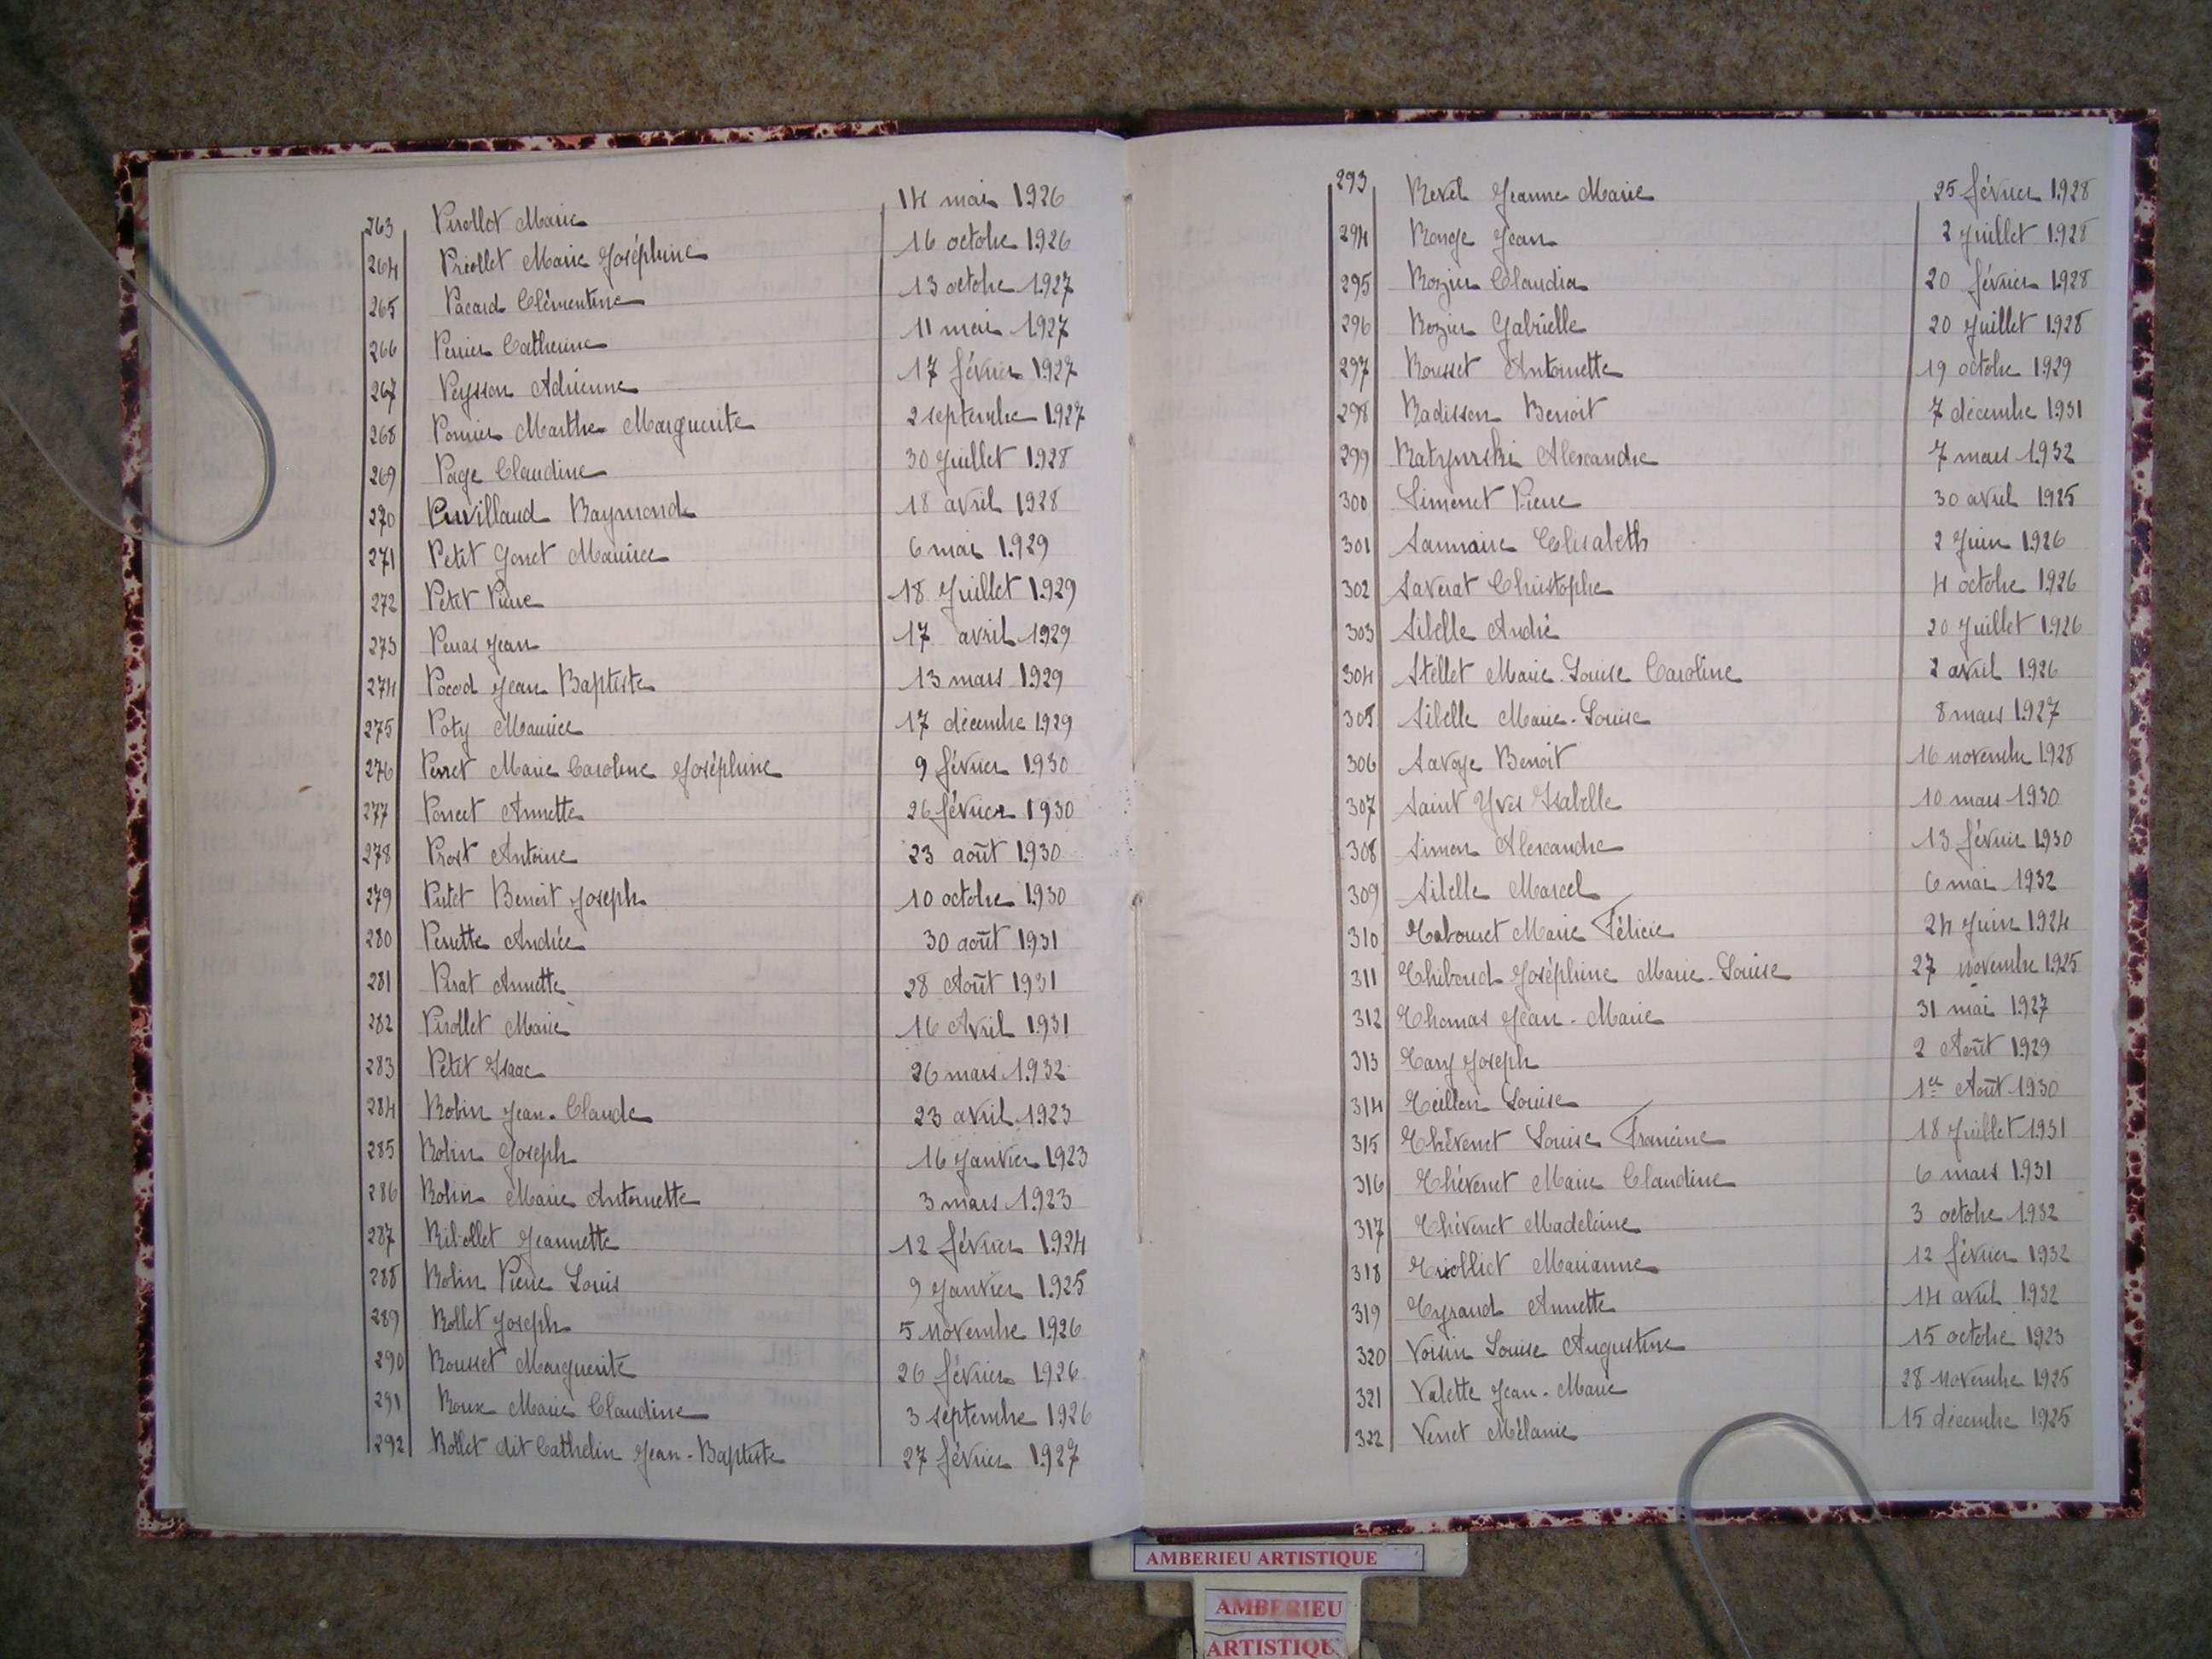 263 Pirollet Marie 14 mai 1926
264 Priollet Marie Joséphine 16 octobre 1926
265 Pacard Clémentine 13 octobre 1927
266 Perrier Catherine 11 mai 1927
267 Peysson Adrienne 17 février 1927
268 Pomier Marthe Marguerite 2 septembre 1927
269 Page Claudine 30 Juillet 1928
270 Puvillaud Raymond 18 avril 1928
271 Petit Gonet Maurice 6 mai 1929
272 Petit Pierre 18 Juillet 1929
273 Penas Jean 17 avril 1929
274 Pocod Jean Baptiste 13 mars 1929
275 Poty Maurice 17 décembre 1929
276 Perret Marie Caroline Joséphine 9 février 1930
277 Poncet Annette 26 février 1930
278 Prost Antoine 23 août 1930
279 Putet Benoit Joseph 10 octobre 1930
280 Perrette Andrée 30 août 1931
281 Pirat Annette 28 Août 1931
282 Pirollet Marie 16 Avril 1931
283 Petit Isaac 26 mars 1932
284 Robin Jean-Claude 23 avril 1923
285 Robin Joseph 16 Janvier 1923
286 Robin Marie Antoinette 3 mars 1923
287 Ribollet Jeannette 12 février 1924
288 Robin Pierre Louis 9 Janvier 1925
289 Rollet Joseph 5 Novembre 1926
290 Rousset Marguerite 26 février 1926
291 Roux Marie Claudine 3 septembre 1926
292 Rollet dit Cathelin Jean-Baptiste 27 février 1927
293 Revel Jeanne Marie 25 février 1928
294 Ronge Jean 2 Juillet 1928
295 Rozier Claudia 20 février 1928
296 Rozier Gabrielle 20 Juillet 1928
297 Rousset Antoinette 19 octobre 1929
298 Radisson Benoit 7 décembre 1931
299 Alexandre 7 mars 1932
300 Simonet Pierre 30 avril 1925
301 Sanmaire Elisabeth 2 Juin 1926
302 Saverat Christophe 4 octobre 1926
303 Sibelle André 20 Juillet 1926
304 Stellet Marie-Louise Caroline 2 avril 1926
305 Sibelle Marie-Louise 8 mars 1927
306 Savoye Benoit 16 novembre 1928
307 Saint Yves Isabelle 10 mars 1930
308 Simon Alexandre 13 février 1930
309 Sibelle Marcel 6 mai 1932
310 Tabouret Marie Félicie 24 Juin 1924
311 Thibaud Joséphine Marie-Louise 27 novembre 1925
312 Thomas Jean-Marie 31 mai 1927
313 Tary Joseph 2 Août 1929
314 Teillon Louise 1er Août 1930
315 Thévenet Louise Francine 18 Juillet 1931
316 Thévenet Marie Claudine 6 mars 1931
317 Thévenet Madeleine 3 octobre 1932
318 Triolliet Marianne 12 février 1932
319 Tyraud Annette 14 avril 1932
320 Voisin Louise Augustine 15 octobre 1923
321 Valette Jean-Marie 28 Novembre 1925
322 Venet Mélanie 15 décembre 1925
AMBERIEU ARTISTIQUE
AMBERIEU
ARTISTIQUE